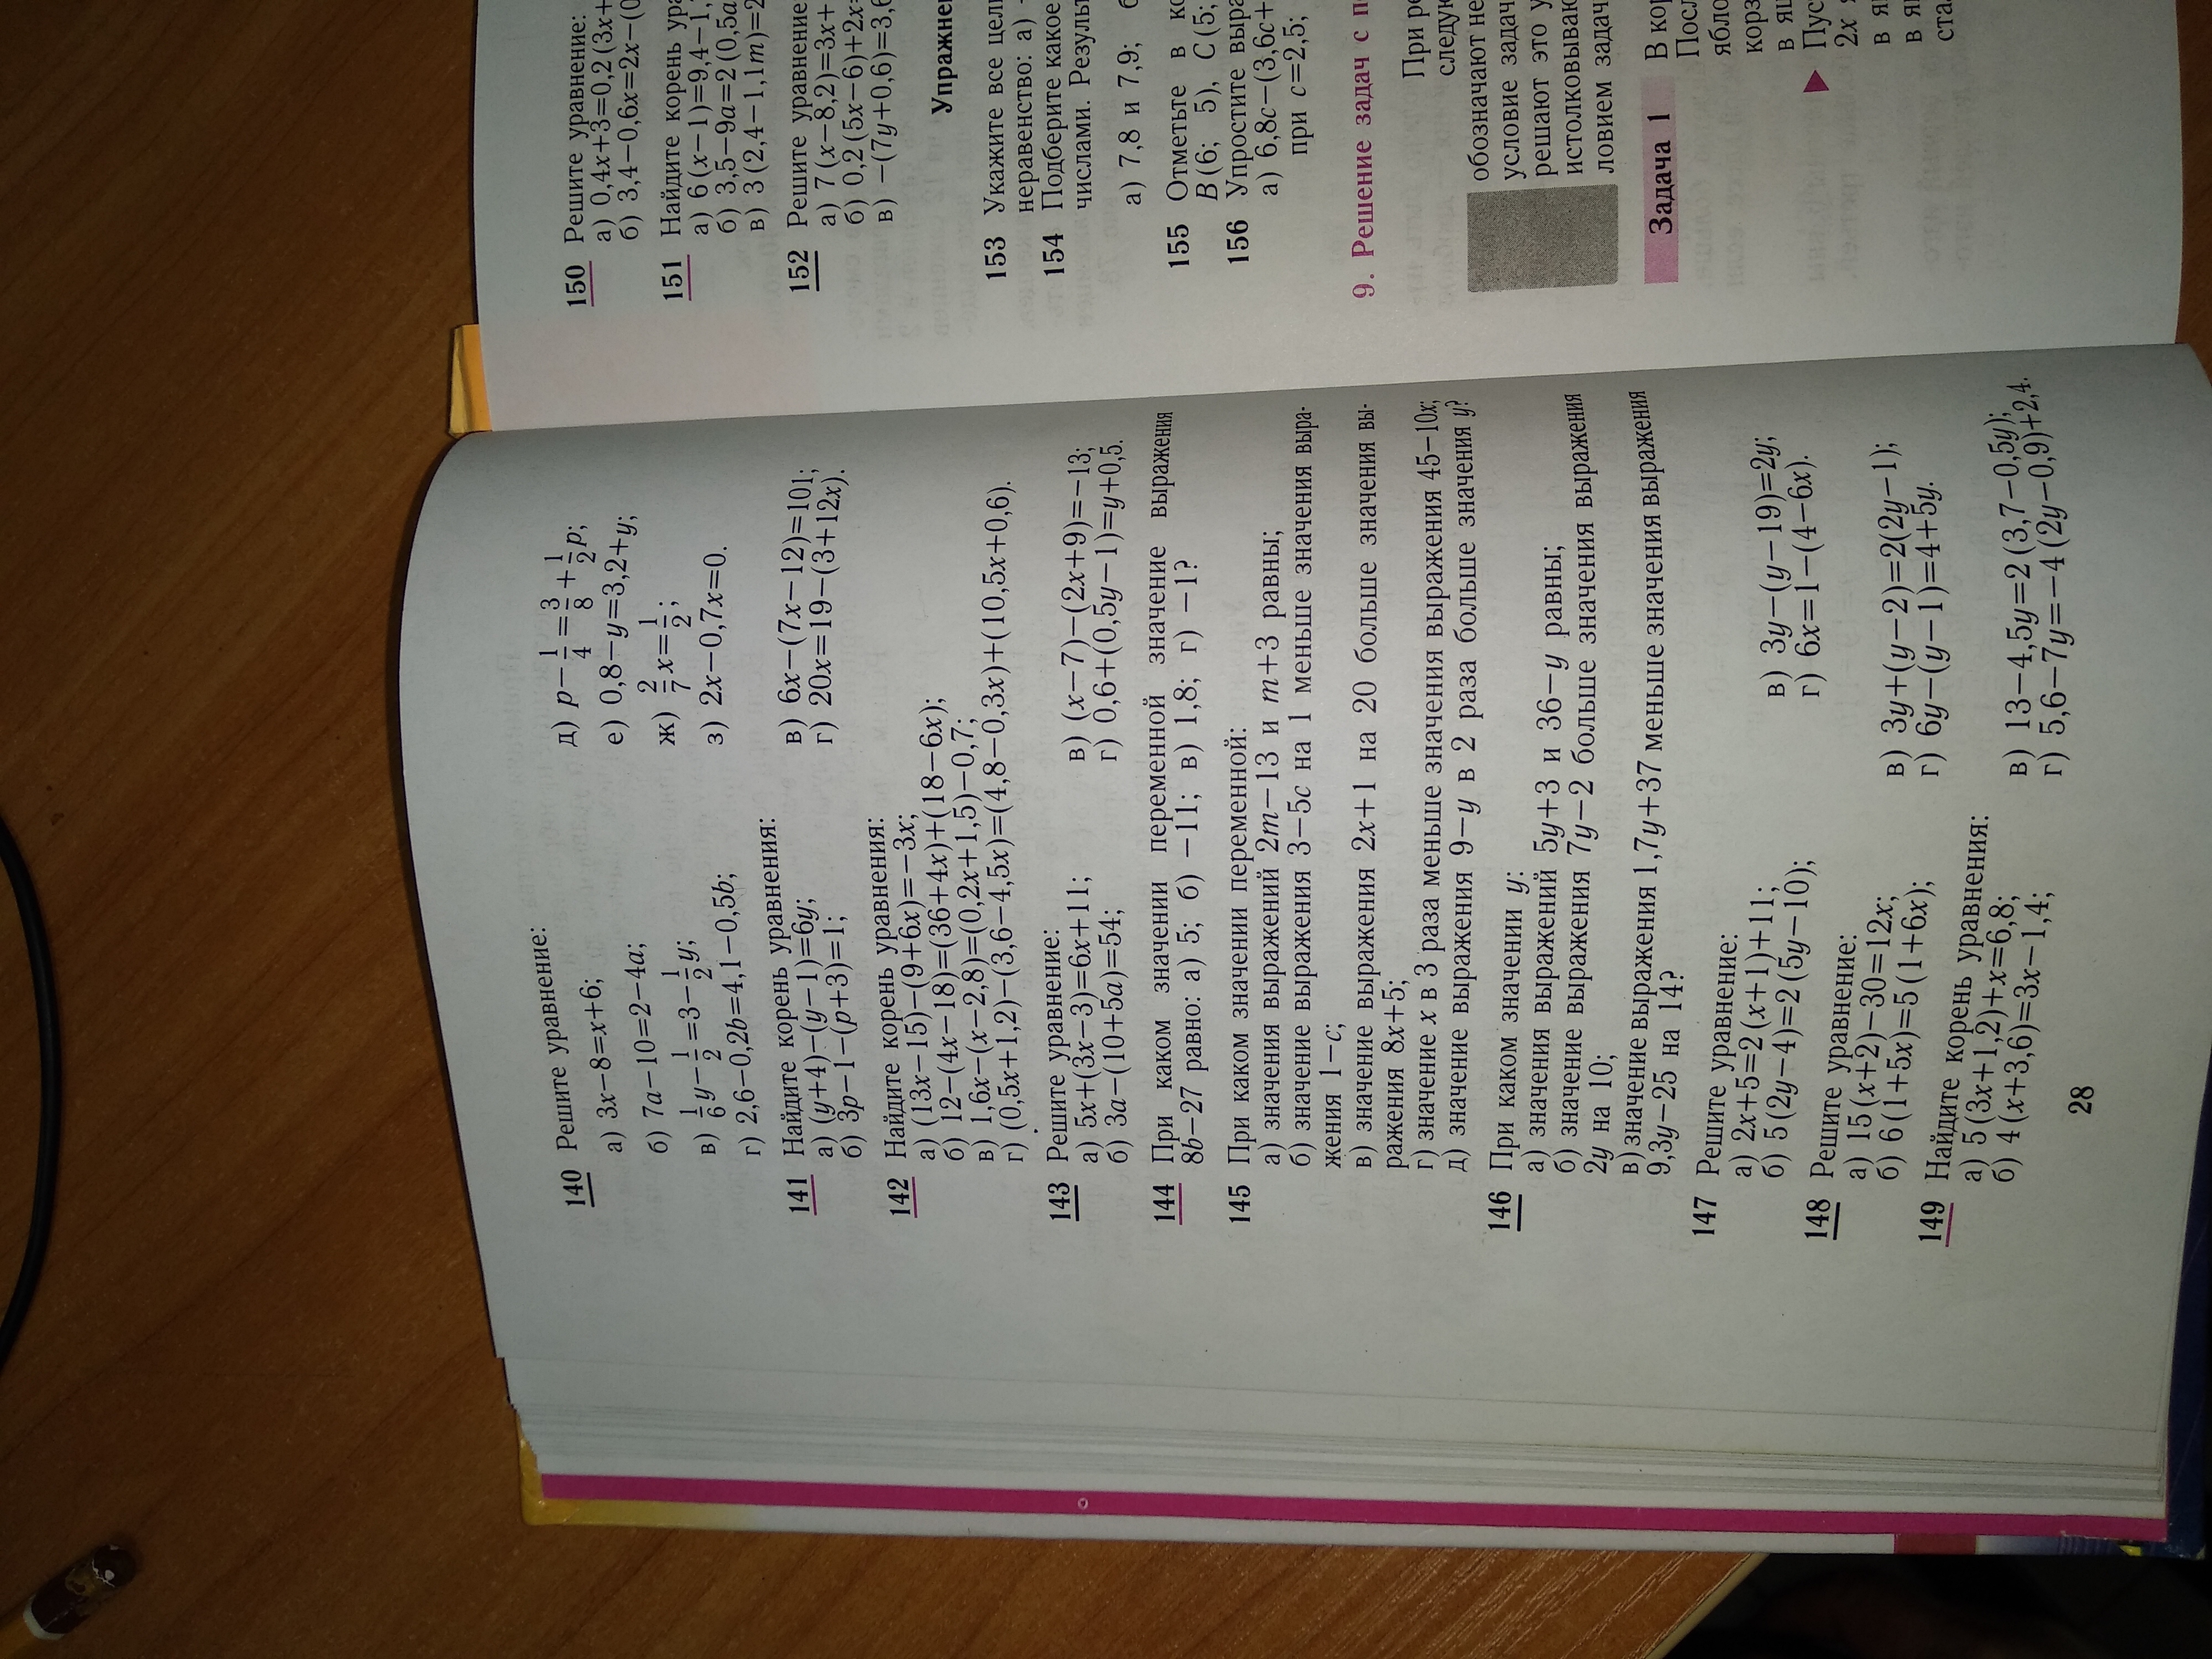 140 Решите уравнение:
а) 3x−8=x+6;
б) 7a−10=2−4a;
в) 1/6 y−1/2=3−1/2 y;
г) 2,6−0,2b=4,1−0,5b;
д) p−1/4=3/8+1/2 p;
е) 0,8−y=3,2+y;
ж) 2/7 x=1/2;
з) 2x−0,7x=0.
141 Найдите корень уравнения:
а) (y+4)−(y−1)=6y;
б) 3p−1−(p+3)=1;
в) 6x−(7x−12)=101;
г) 20x=19−(3+12x).
142 Найдите корень уравнения:
а) (13x−15)−(9+6x)=−3x;
б) 12−(4x−18)=(36+4x)+(18−6x);
в) 1,6x−(x−2,8)=(0,2x+1,5)−0,7;
г) (0,5x+1,2)−(3,6−4,5x)=(4,8−0,3x)+(10,5x+0,6).
143 Решите уравнение:
а) 5x+(3x−3)=6x+11;
б) 3a−(10+5a)=54;
в) (x−7)−(2x+9)=−13;
г) 0,6+(0,5y−1)=y+0,5.
144 При каком значении переменной значение выражения
8b−27 равно: а) 5; б) −11; в) 1,8; г) −1?
145 При каком значении переменной:
а) значения выражений 2m−13 и m+3 равны;
б) значение выражения 3−5c на 1 меньше значения выра-
жения 1−c;
в) значение выражения 2x+1 на 20 больше значения вы-
ражения 8x+5;
г) значение x в 3 раза меньше значения выражения 45−10x;
д) значение выражения 9−y в 2 раза больше значения y?
146 При каком значении y:
а) значения выражений 5y+3 и 36−y равны;
б) значение выражения 7y−2 больше значения выражения
2y на 10;
в) значение выражения 1,7y+37 меньше значения выражения
9,3y−25 на 14?
147 Решите уравнение:
а) 2x+5=2(x+1)+11;
б) 5(2y−4)=2(5y−10);
в) 3y−(y−19)=2y;
г) 6x=1−(4−6x).
148 Решите уравнение:
а) 15(x+2)−30=12x;
б) 6(1+5x)=5(1+6x);
в) 3y+(y−2)=2(2y−1);
г) 6y−(y−1)=4+5y.
149 Найдите корень уравнения:
а) 5(3x+1,2)+x=6,8;
б) 4(x+3,6)=3x−1,4;
в) 13−4,5y=2(3,7−0,5y);
г) 5,6−7y=−4(2y−0,9)+2,4.
28
150 Решите уравнение:
а) 0,4x+3=0,2(3x+
б) 3,4−0,6x=2x−(0
151 Найдите корень ура
а) 6(x−1)=9,4−1,
б) 3,5−9a=2(0,5a
в) 3(2,4−1,1m)=2
152 Решите уравнение
а) 7(x−8,2)=3x+
б) 0,2(5x−6)+2x=
в) −(7y+0,6)=3,6
Упражнен
153 Укажите все цели
неравенство: а) −
154 Подберите какое
числами. Резуль
а) 7,8 и 7,9; б
155 Отметьте в ко
B(6; 5), C(5;
156 Упростите выра
а) 6,8c−(3,6c+
при c=2,5;
9. Решение задач с п
При ре
следую
обозначают не
условие задач
решают это у
истолковываю
ловием задач
Задача 1 В кор
Посл
ябло
корз
в ящ
Пус
2x я
в я
в я
ста